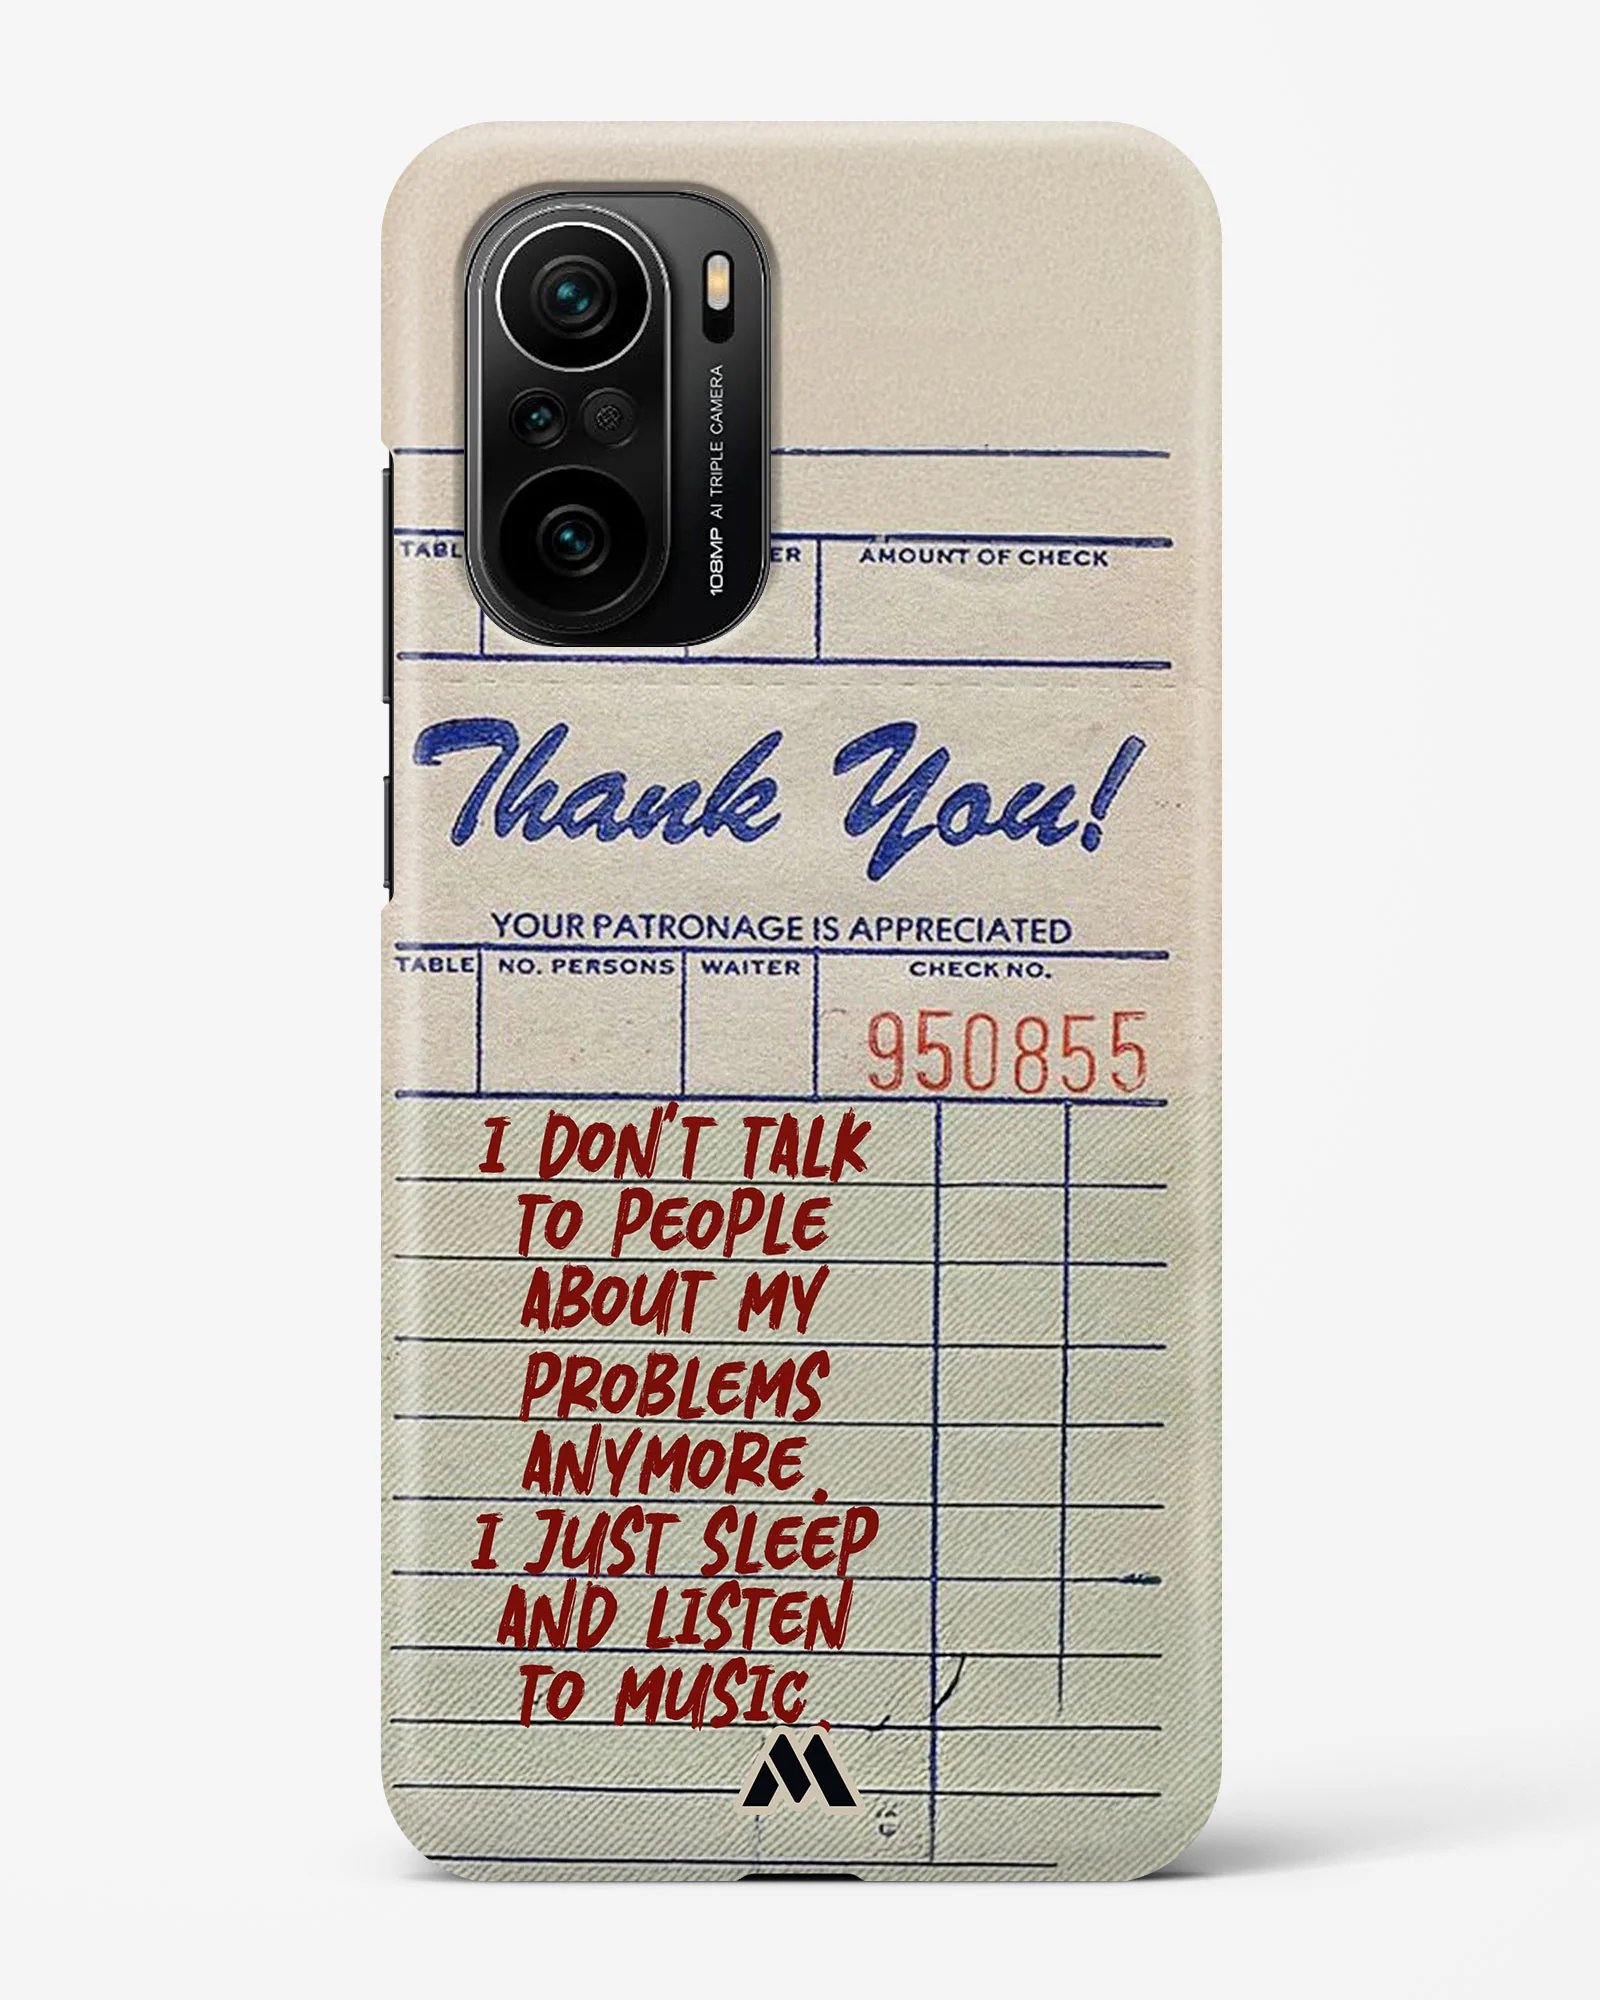 108MP AI TRIPLE CAMERA
TABL ER AMOUNT OF CHECK
Thank You!
YOUR PATRONAGE IS APPRECIATED
TABLE NO. PERSONS WAITER CHECK NO.
950855
I DON'T TALK
TO PEOPLE
ABOUT MY
PROBLEMS
ANYMORE.
I JUST SLEEP
AND LISTEN
TO MUSIC.